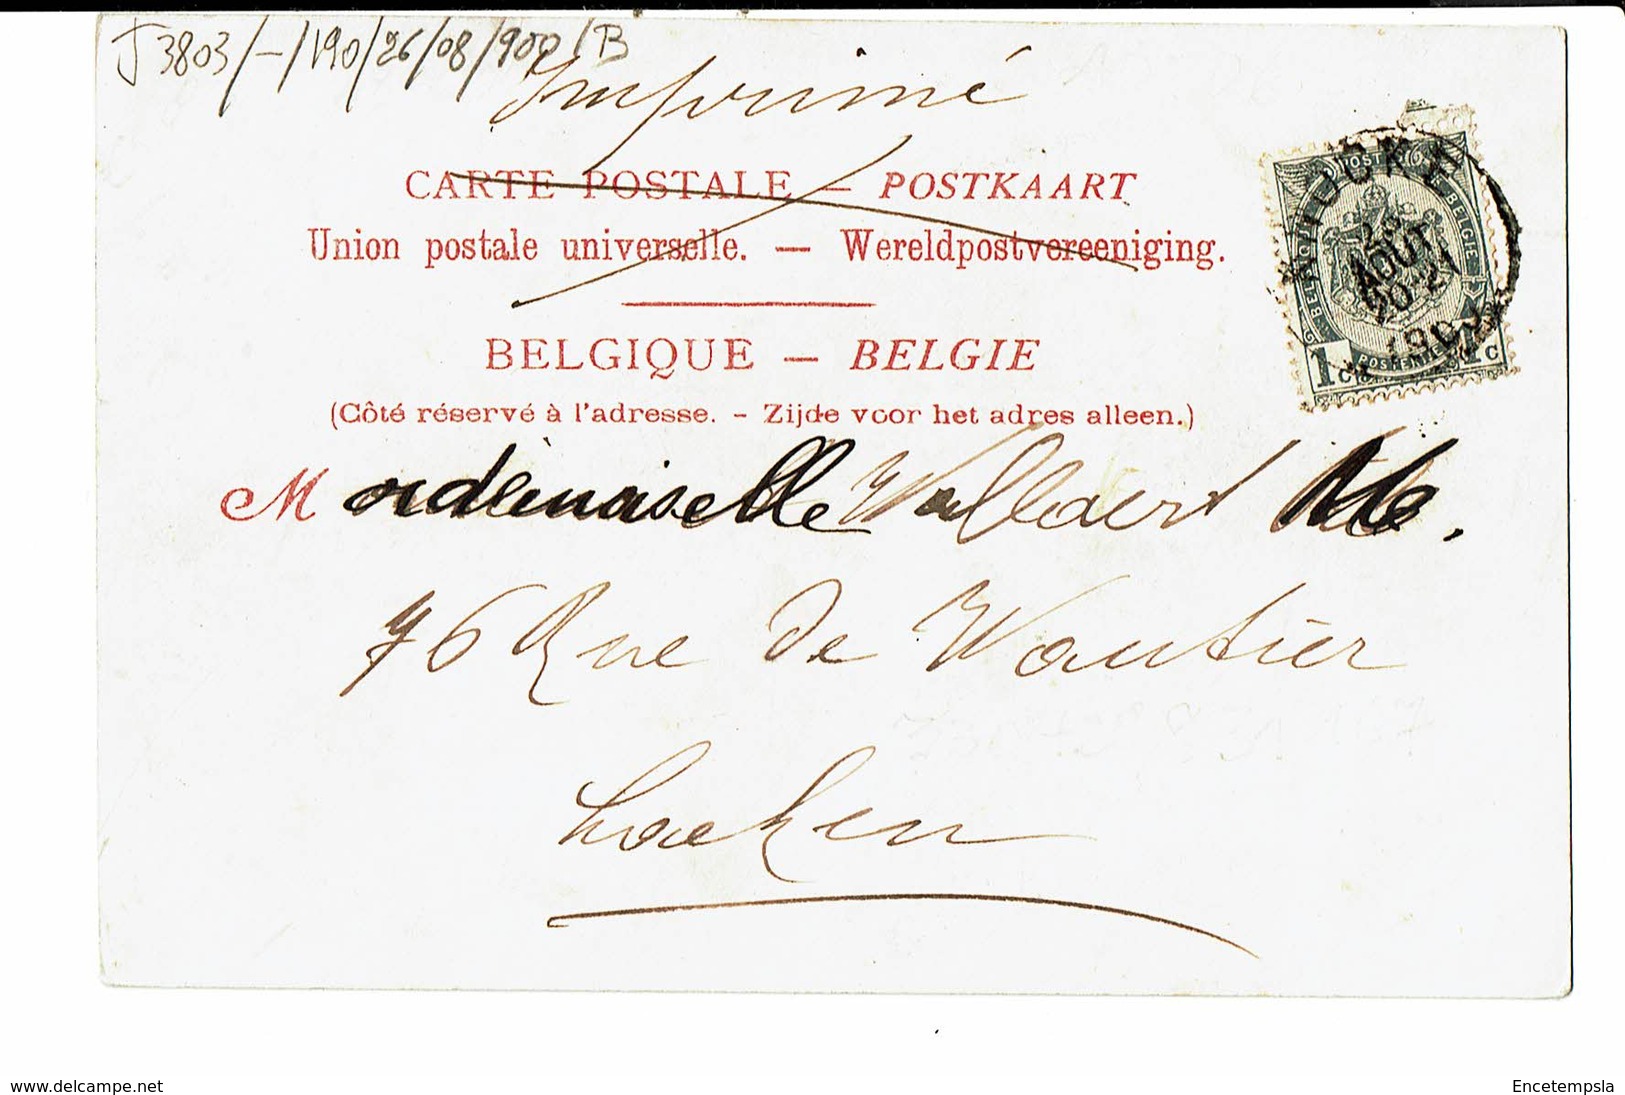 J3803/-/190/26/08/902/B
Imprimé
CARTE POSTALE — POSTKAART
Union postale universelle. — Wereldpostvereeniging.
BELGIQUE — BELGIE
(Côté réservé à l'adresse. - Zijde voor het adres alleen.)
M
76 Rue de Wautier
Laeken
POSTES
BELGIQUE
BELGIE
POSTERIJEN
1c
AOUT
20-21
www.delcampe.net
Encetempsla